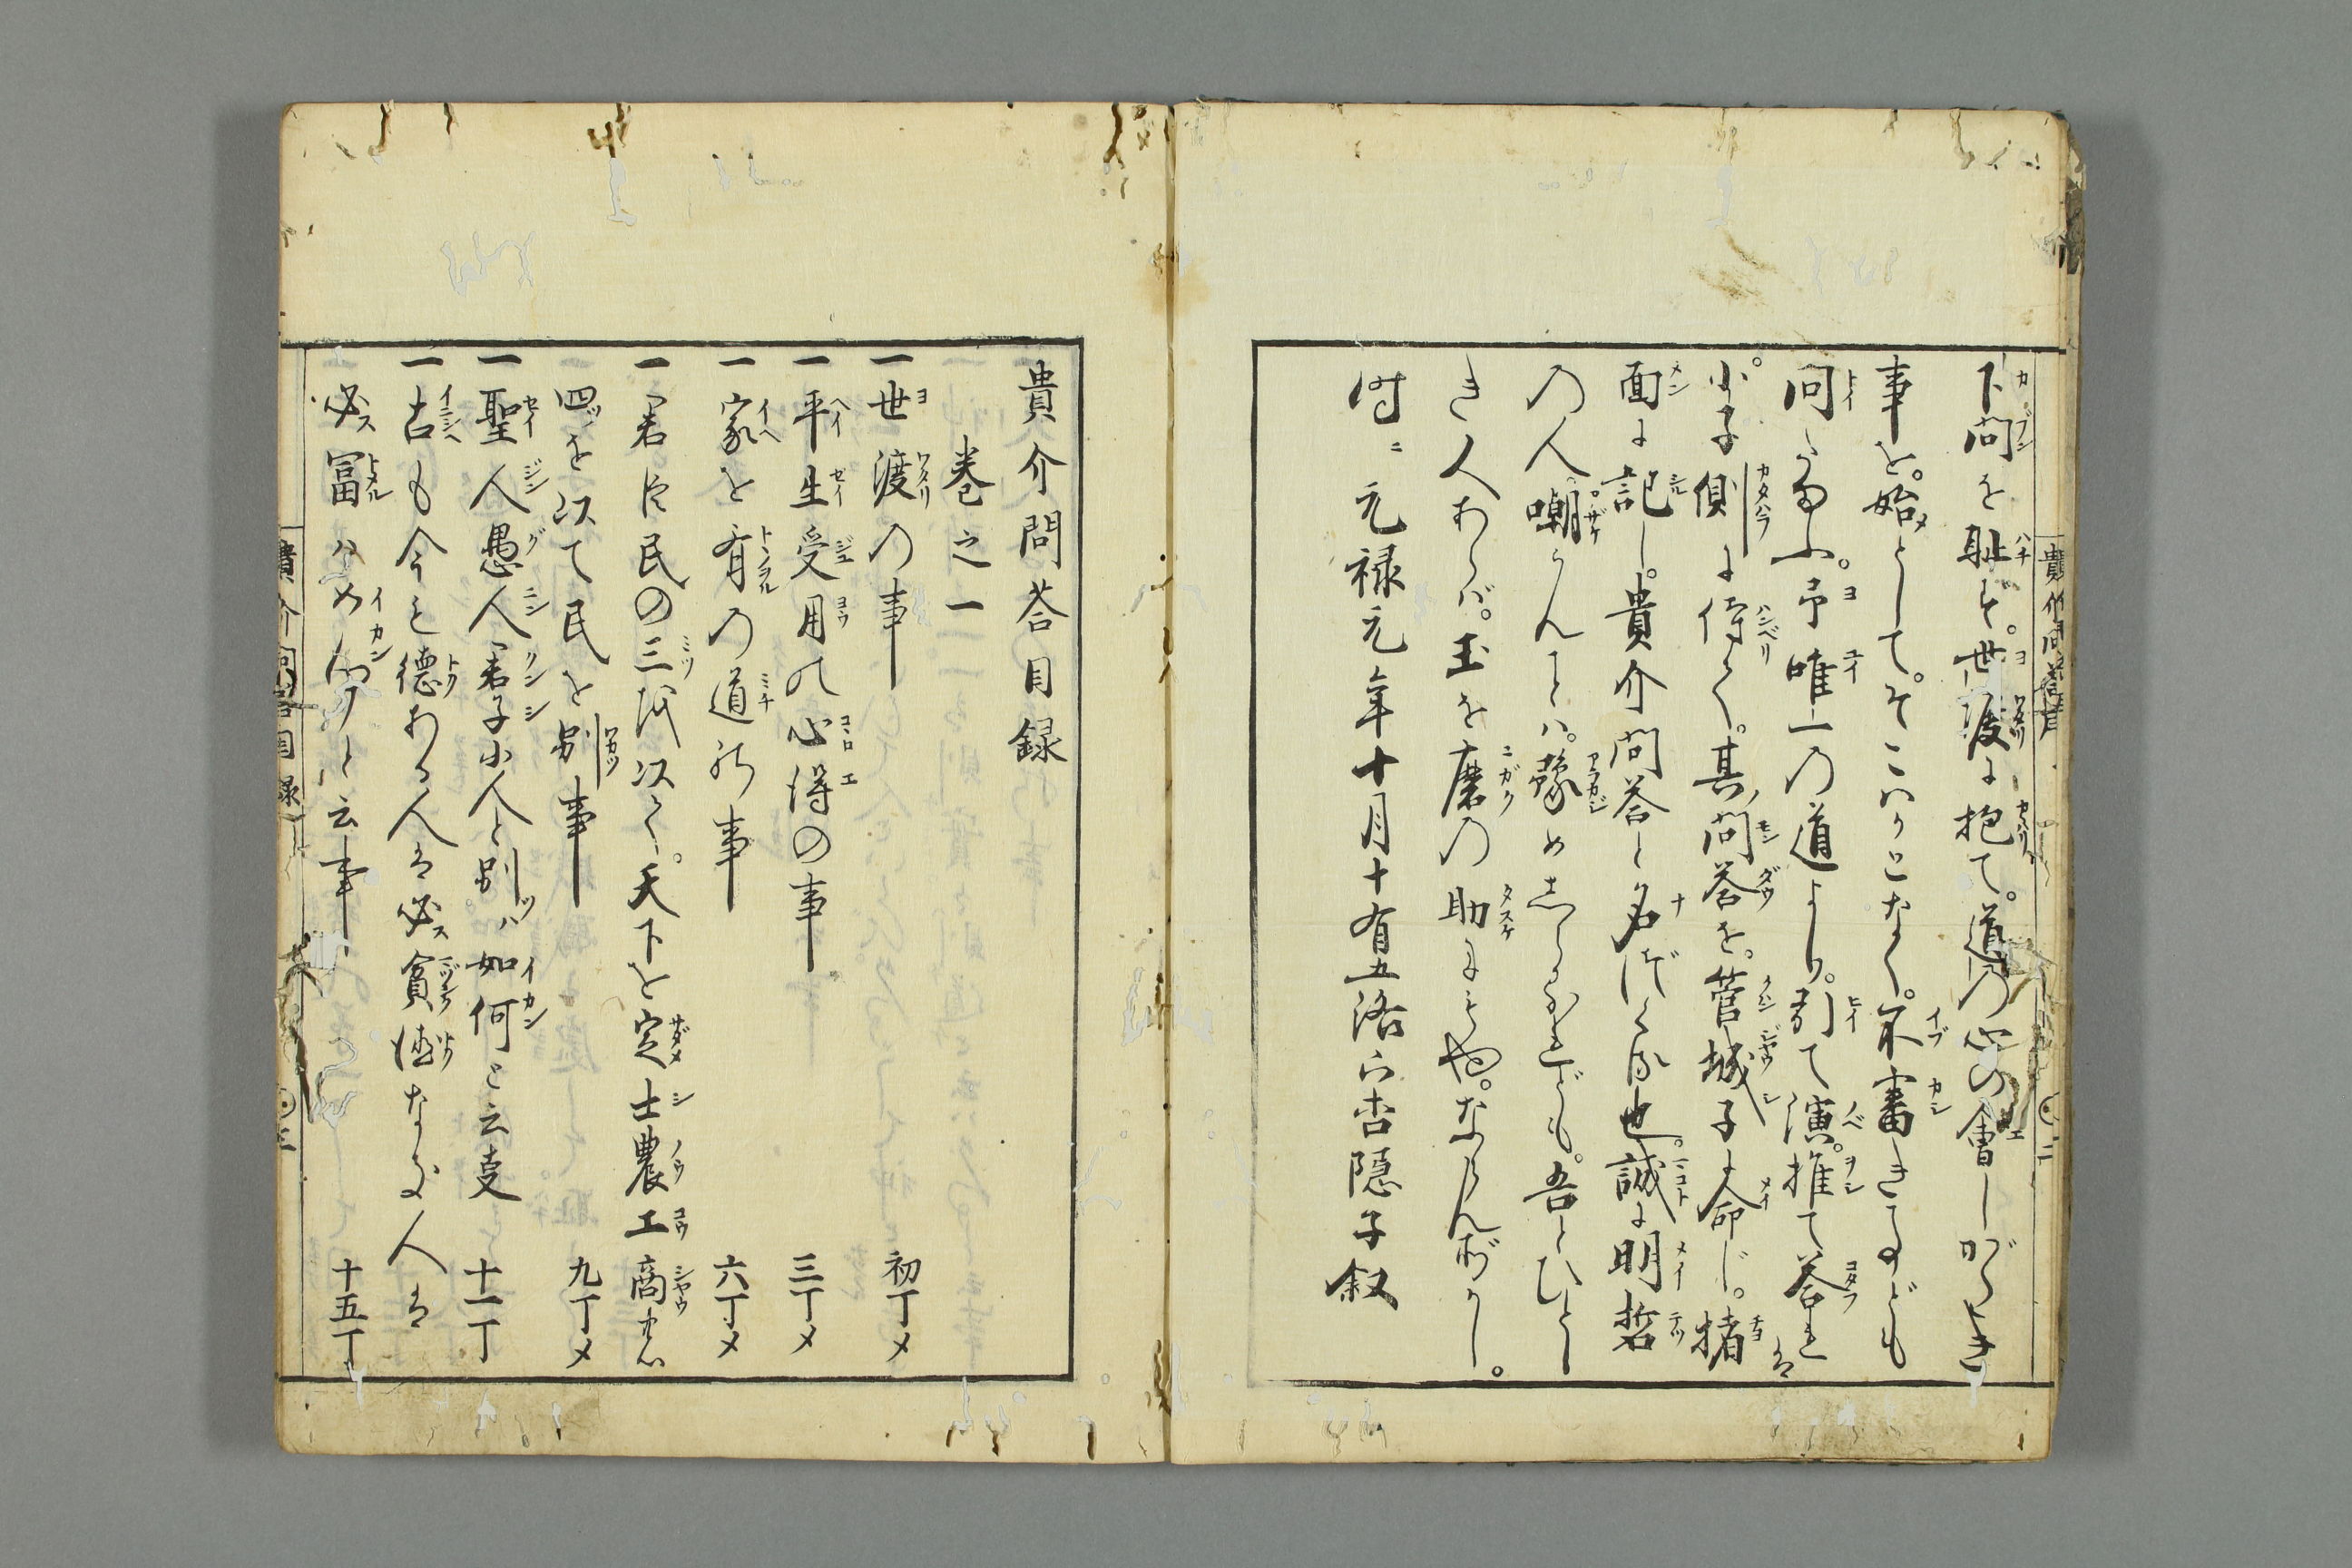 下問を耻ず。世渡に抱て。道の心の會しがたき
事を。始として。そこはかとなく。不審きことども
問たまふ。予唯一の道より。引て演。推て答れは
小子側に侍て。其問答を。管城子に命じ。楮
面に記し。貴介問答と名づくる也。誠に明哲
の人。嘲らんことハ。豫めしらるれども。吾とひとし
き人あらバ。玉を磨の助にもや。ならんがかし。
時ニ元禄元年十月十有五洛下杏隠子叙
貴介問荅目録
巻之一
一世渡の事 初丁メ
一平生受用の心得の事 三丁メ
一家を有の道の事 六丁メ
一君臣民の三を以て。天下を定士農工商の
四ッを以て民を別事 九丁メ
一聖人愚人君子小人と別ッハ如何と云事 十一丁
一古も今も徳ある人は必ス貧徳なき人は
必ス冨 と云事 十五丁